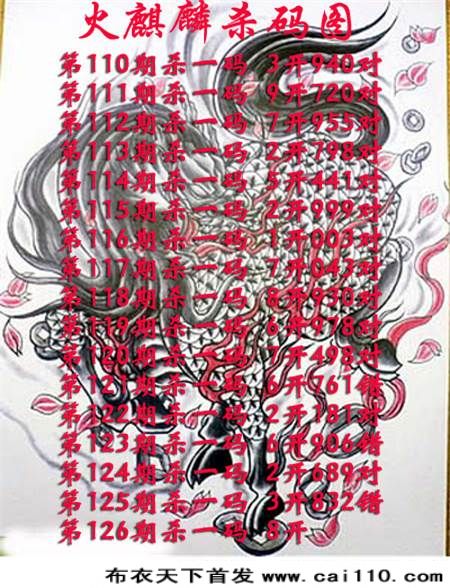 火麒麟杀码图
第110期杀一码 3开940对
第111期杀一码 9开720对
第112期杀一码 7开955对
第113期杀一码 2开798对
第114期杀一码 5开441对
第115期杀一码 2开999对
第116期杀一码 1开003对
第117期杀一码 7开043对
第118期杀一码 8开930对
第119期杀一码 6开978对
第120期杀一码 7开498对
第121期杀一码 6开761错
第122期杀一码 2开181对
第123期杀一码 6开906错
第124期杀一码 2开689对
第125期杀一码 3开832错
第126期杀一码 8开
布衣天下首发 www.cai110.com